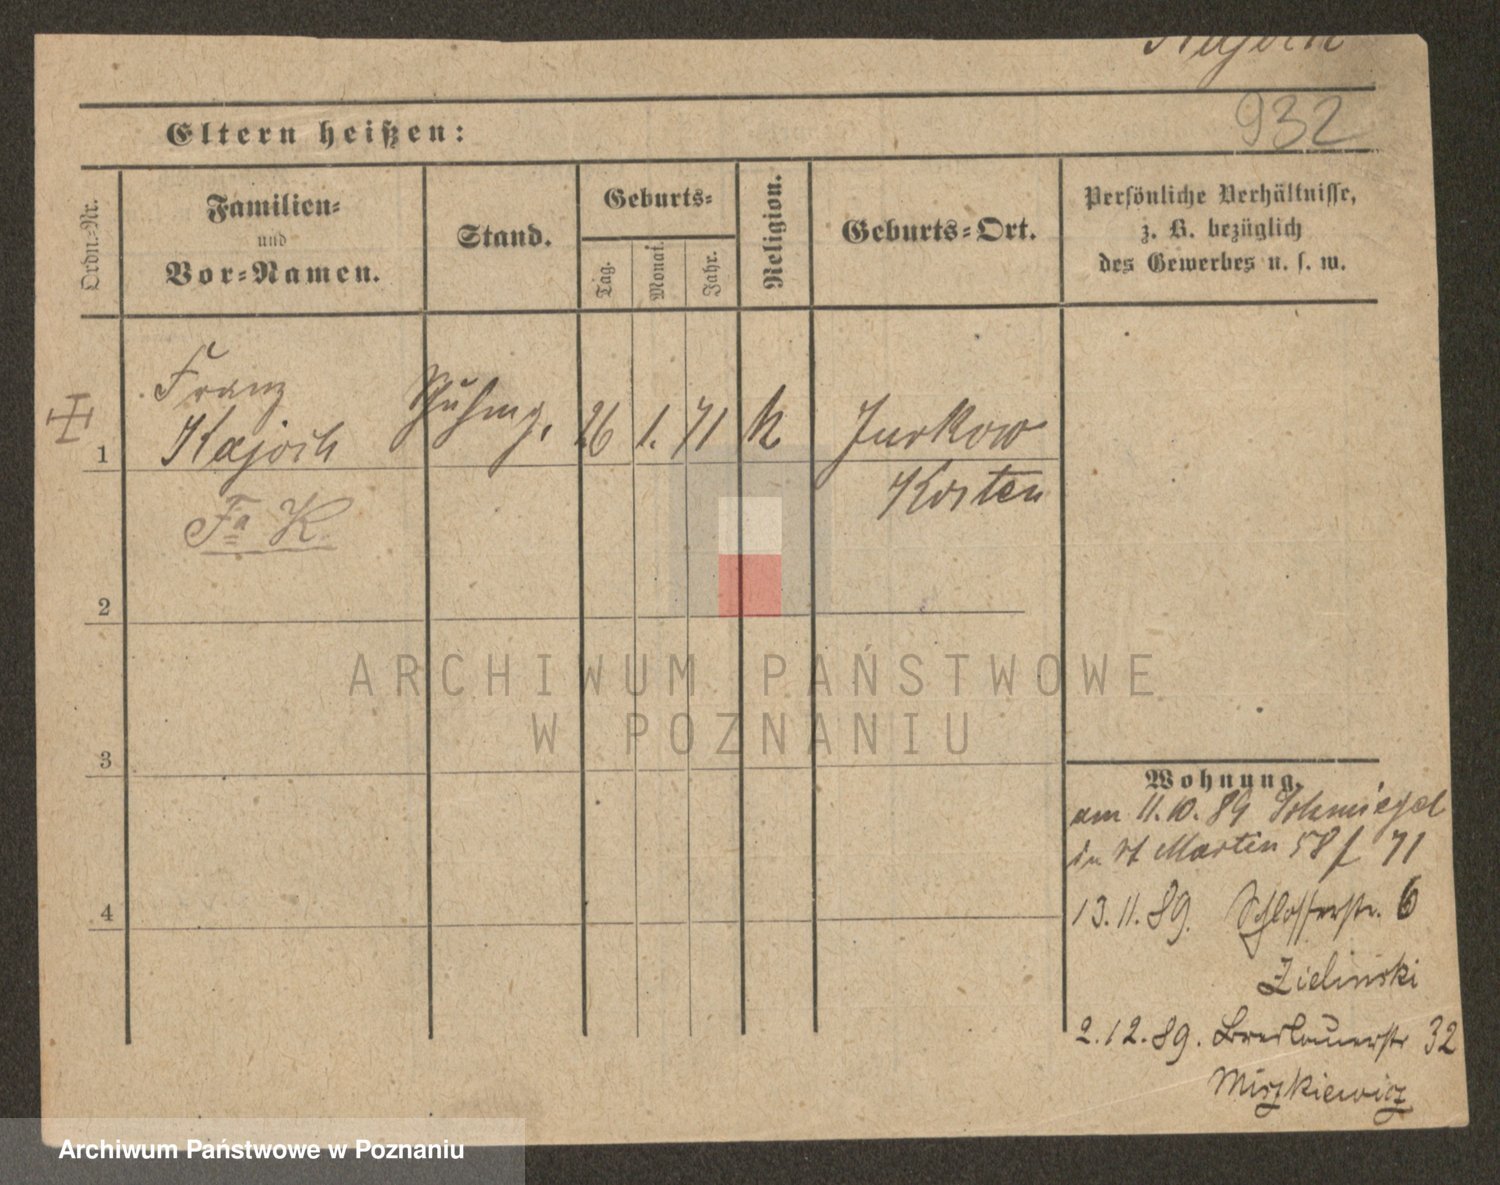 Kajoch
932
Eltern heißen:
Ordn.-Nr.
Familien-
und
Vor-Namen.
Stand.
Geburts-
Tag.
Monat.
Jahr.
Religion.
Geburts-Ort.
Persönliche Verhältnisse,
z. B. bezüglich
des Gewerbes u. s. w.
Franz
1 Kajoch Schuhmg. 26 1. 71 k Jurkow
Kosten
Fa K.
2
3
4
Wohnung.
am 11.10.89 Schmiegel
in St Martin 58 f 71
13.11.89. Schlosserstr. 6
Zielinski
2.12.89. Breslauerstr 32
Miszkiewicz
ARCHIWUM PAŃSTWOWE
W POZNANIU
Archiwum Państwowe w Poznaniu